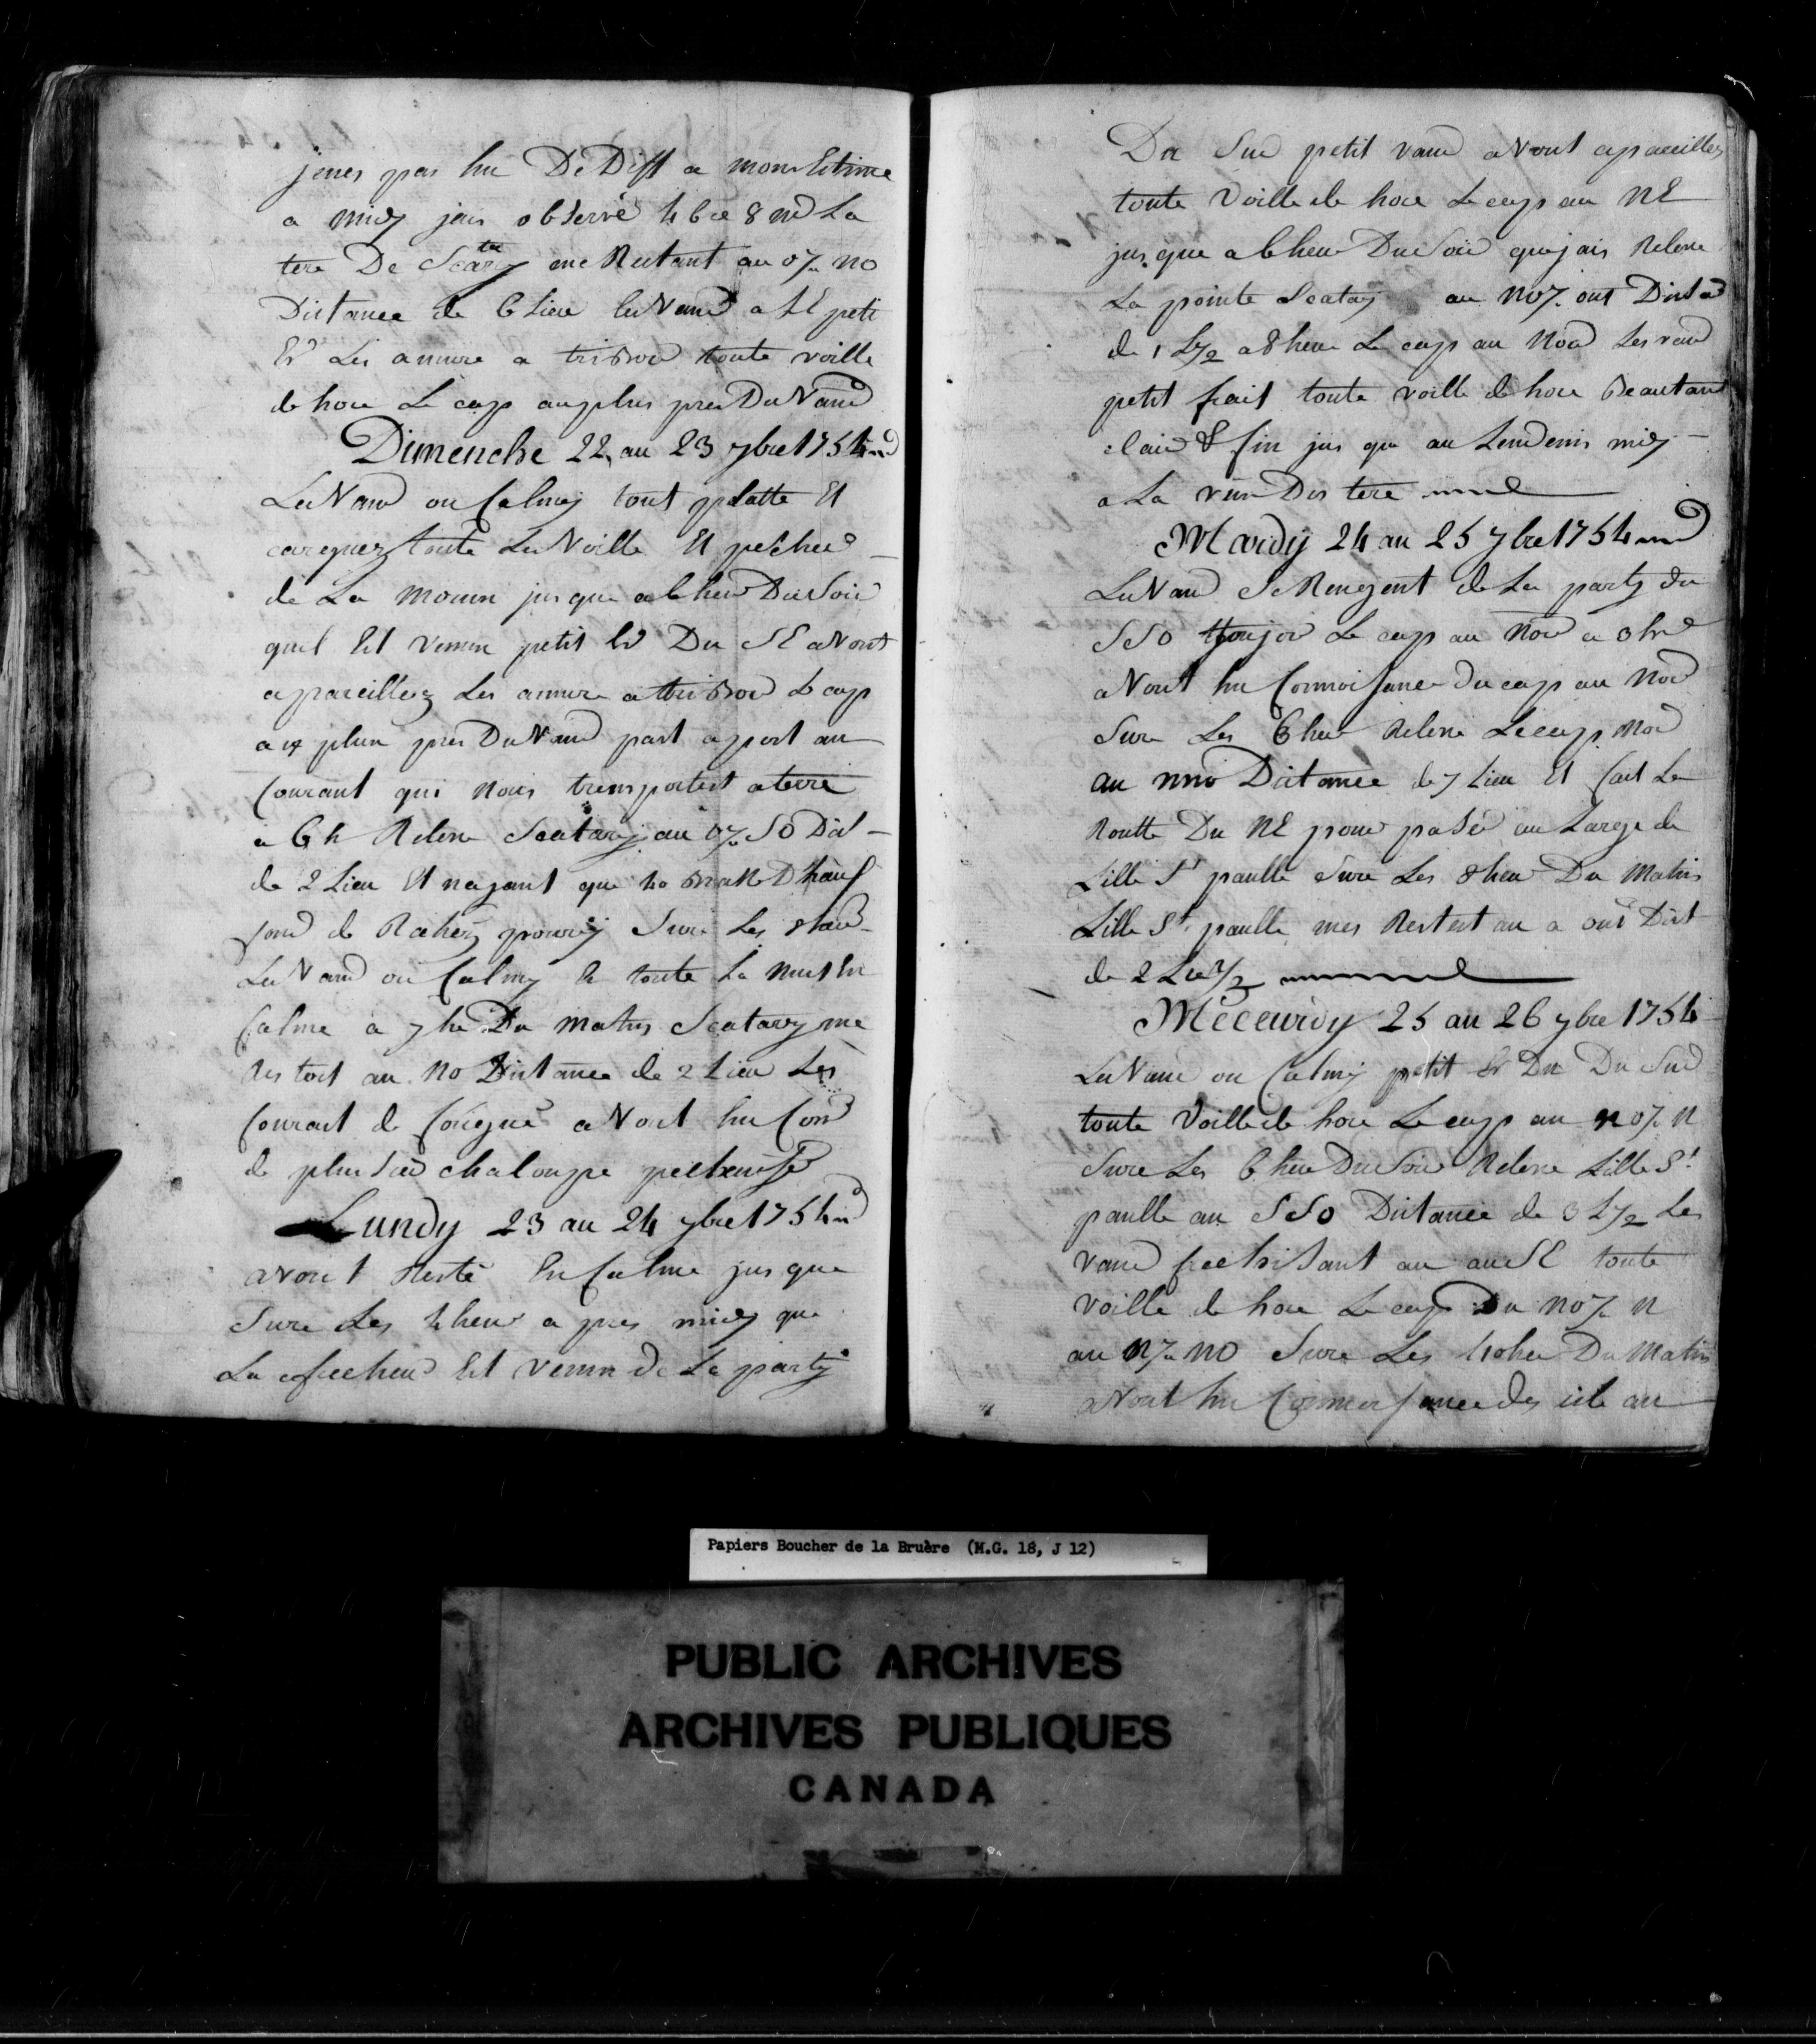 jenes pas hu De Diff a mon Estime
a midy jais observé 4 bre 8 md La
tere De Scatary me Restant au o¼ no
Distance de 6 Lieu le Vand a SE peti
Er Les amure a tribord toute voille
de hore Le cap au plus pres Du Vand
Dimenche 22 au 23 7bre 1754
Le Vand ou Calmy tout platte Et
carguez toute Le Voille Et pecher
de La Moure jus que a 6 heur Du Soir
quil Est Venu petit Er Du SE avont
apareillez Les amure a tribord Le cap
au plus pres Du Vand part aport au
Courant qui nous transportest a terre
a 6 h Relevé Scatary au o¼ SO Dist
de 2 Lieu Et nayant que 40 Brasse Dhau
fond de Rocher pourry Sure Les 8 heur
Le Vand ou Calmy Er toute La nuit En
Calme a 7 he Du Matin Scatary me
Restoit au NO Distance de 2 Lieu Les
Courant de avont hu Con
de plusieur chaloupe pecheuse
Lundy 23 au 24 7bre 1754
avont Resté En Calme jus que
Sure Les 4 heur a pres midy que
La frecheur Est venu de La party
Du Sud petit vand avont apareillez
toute Voille de hore Le cap au NE
jus que a 6 heur Du Soir que jais Relevé
La pointe Scatary au NO¼ out Dista
de 1 L½ a 8 heur Le cap au Nord Les vand
petit frait toute voille de hore Beau tant
clair & fin jus qu au Lendemis midy
a La veüe Des tere
Mardy 24 au 25 7bre 1754
Le Vand Se Rengent de La party du
SSO toujor Le cap au Nord a 3 hr
avont hu Connoisance du cap au Nord
Sure Les 6 heur Relevé Le cap Nord
au nno Distance de 7 Lieu Et fait La
Routte Du NE pour paser au Large de
Lille St paulle Sure Les 8 heur Du Matin
Lille St paulle mes Restest au a out Dist
de 2 Lieu ½
Méceurdy 25 au 26 7bre 1754
Le Vand ou Calmy petit Er Du Du Sud
toute Voille de hore Le cap au NO¼ N
Sure Les 6 heur Du Soir Relevé Lille St
paulle au SSO Distance de 3 L½ Les
vand frechisant au au SE toute
Voille de hore Le cap Du NO¼ N
au N¼ NO Sure Les 10 heu Du Matin
avont hu Connoisance des isle au
Papiers Boucher de la Bruère (M.G. 18, J 12)
PUBLIC ARCHIVES
ARCHIVES PUBLIQUES
CANADA